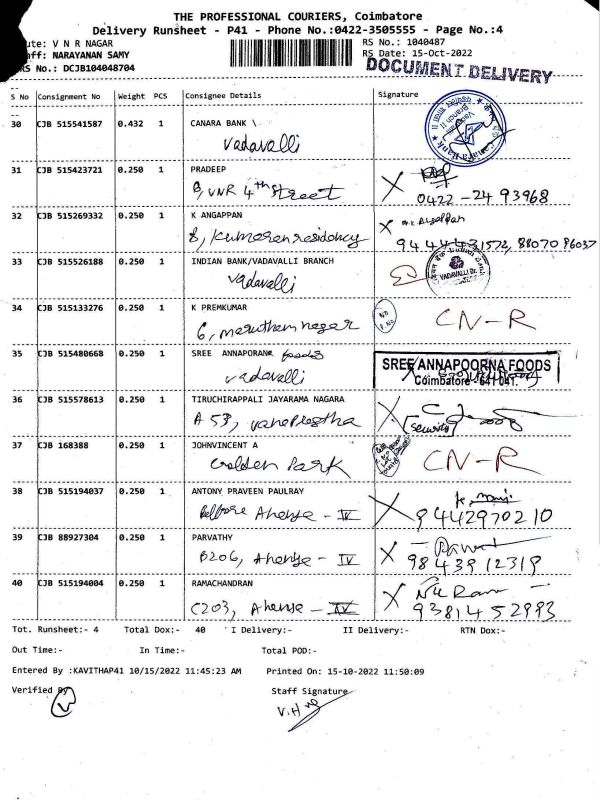 THE PROFESSIONAL COURIERS, Coimbatore
Delivery Runsheet - P41 - Phone No.:0422-3505555 - Page No.:4
ute: V N R NAGAR
RS No.: 1040487
ff: NARAYANAN SAMY
RS Date: 15-Oct-2022
RS No.: DCJB104048704
DOCUMENT DELIVERY
S No Consignment No Weight PCS Consignee Details Signature
30 CJB 515541587 0.432 1 CANARA BANK \
Vadavalli
31 CJB 515423721 0.250 1 PRADEEP
8, VNR 4th street
0422 - 24 93968
32 CJB 515269332 0.250 1 K ANGAPPAN
8, Kumaran residency
33 CJB 515526188 0.250 1 INDIAN BANK/VADAVALLI BRANCH
Vadavalli
VADAVALLI Br.
34 CJB 515133276 0.250 1 K PREMKUMAR
6, marutham nagar
CN-R
35 CJB 515480668 0.250 1 SREE ANNAPORANA foods
vadavalli
SREE ANNAPOORNA FOODS
Coimbatore - 641 041.
36 CJB 515578613 0.250 1 TIRUCHIRAPPALI JAYARAMA NAGARA
A 53,
37 CJB 168388 0.250 1 JOHNVINCENT A
Golden Park
CN-R
38 CJB 515194037 0.250 1 ANTONY PRAVEEN PAULRAY
- IV
9442970210
39 CJB 88927304 0.250 1 PARVATHY
B206, - IV
98439 12319
40 CJB 515194004 0.250 1 RAMACHANDRAN
C203, - IV
93814 52993
Tot. Runsheet:- 4 Total Dox:- 40 I Delivery:- II Delivery:- RTN Dox:-
Out Time:- In Time:- Total POD:-
Entered By :KAVITHAP41 10/15/2022 11:45:23 AM Printed On: 15-10-2022 11:50:09
Verified By
Staff Signature